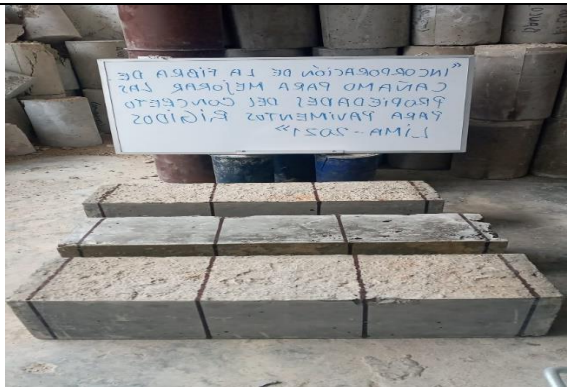 "INCORPORACIÓN DE LA FIBRA DE
CAÑAMO PARA MEJORAR LAS
PROPIEDADES DEL CONCRETO
PARA PAVIMENTOS RÍGIDOS
LIMA - 2021"